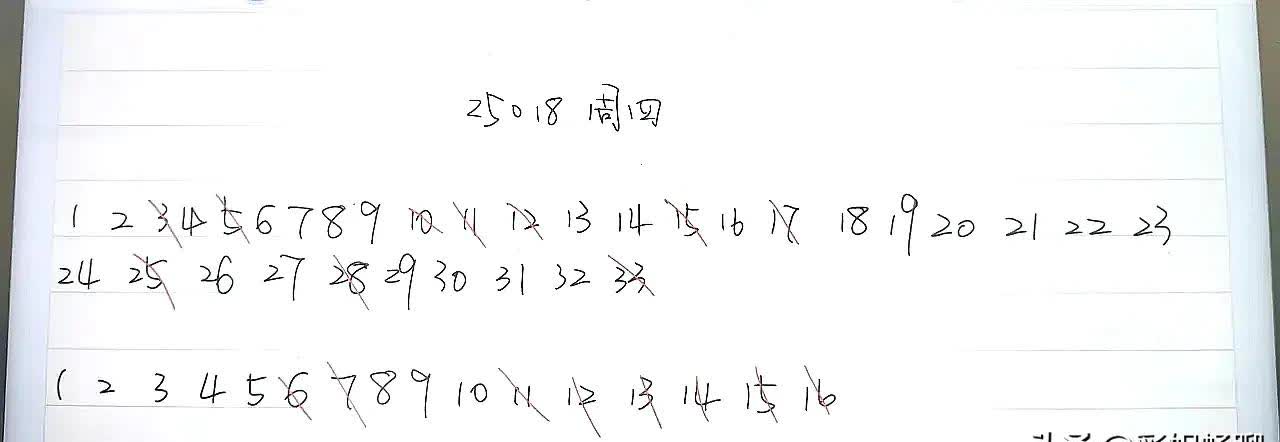 25018 周四
1 2 3 4 5 6 7 8 9 10 11 12 13 14 15 16 17 18 19 20 21 22 23
24 25 26 27 28 29 30 31 32 33
1 2 3 4 5 6 7 8 9 10 11 12 13 14 15 16